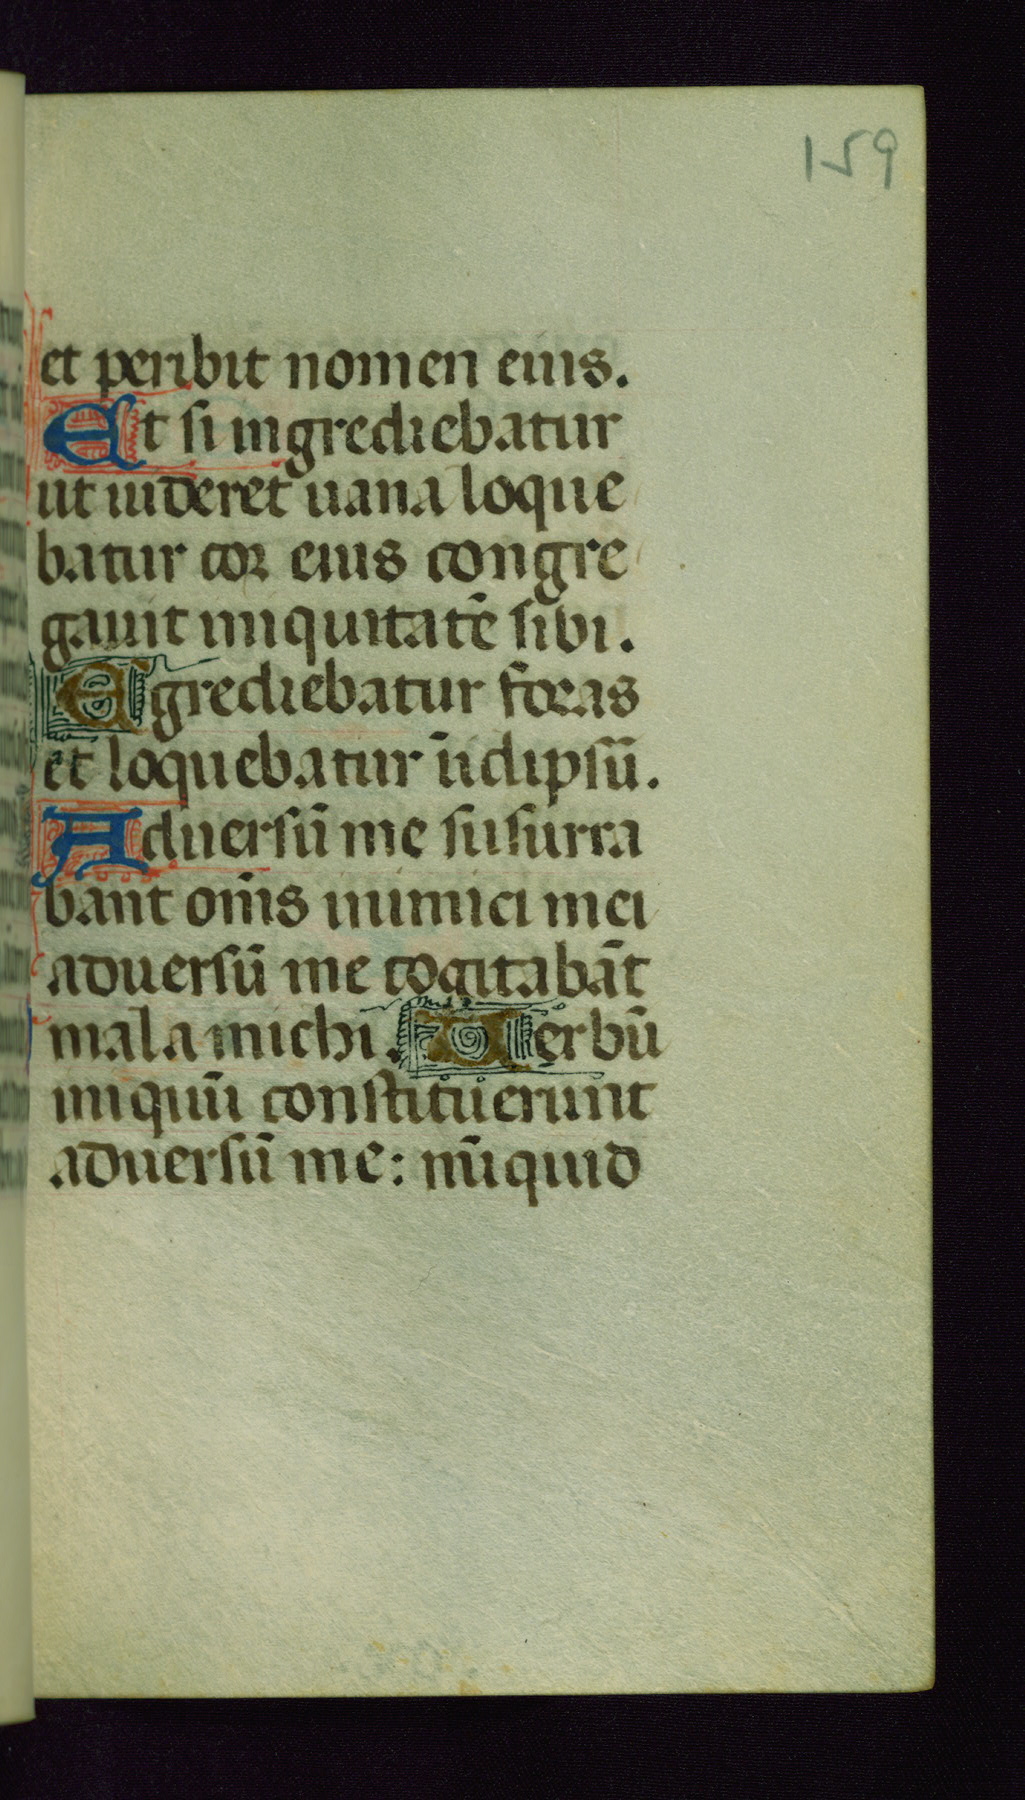 159
et peribit nomen eius.
Et si ingrediebatur
ut uideret uana loque
batur cor eius congre
gauit iniquitatē sibi.
Egrediebatur foras
et loquebatur ı̄idipsū.
Aduersū me susurra
bant om̄s inimici mei
aduersū me cogitabāt
mala michi. Uerbū
iniquū constituerunt
aduersū me: nūquid